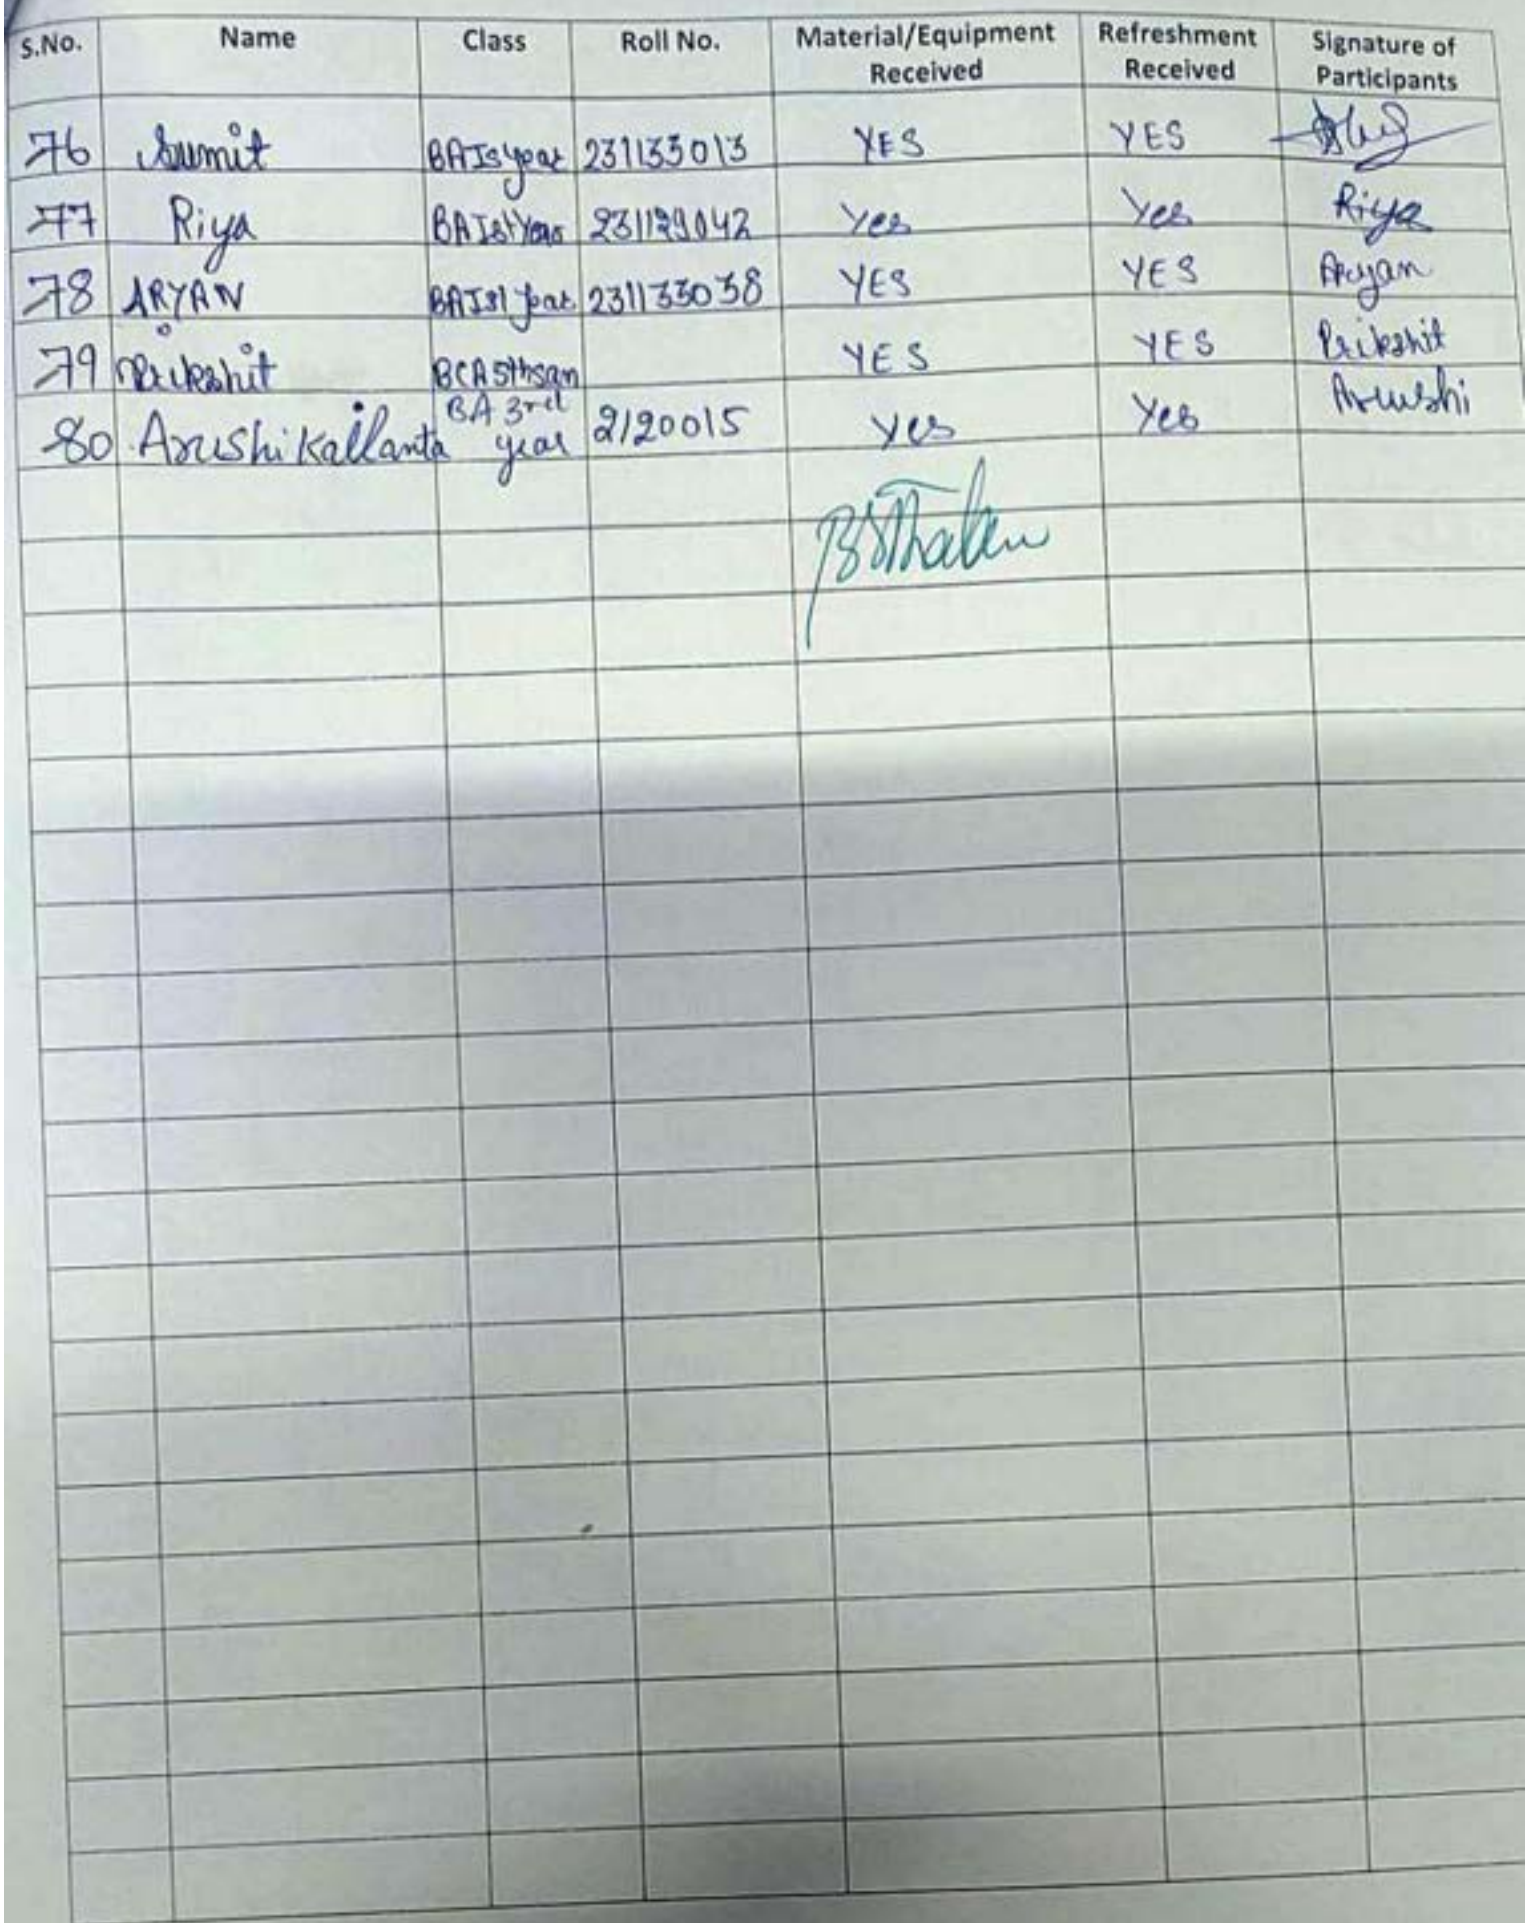 S.No. Name Class Roll No. Material/Equipment Received Refreshment Received Signature of Participants
76 Sumit BA Is year 231133013 YES YES
77 Riya BA Ist Year 231129042 Yes Yes Riya
78 ARYAN BA Ist year 231133038 YES YES Aryan
79 Prikshit BCA 5th sam YES YES Prikshit
80 Arushi Kallanta BA 3rd year 2120015 Yes Yes Arushi